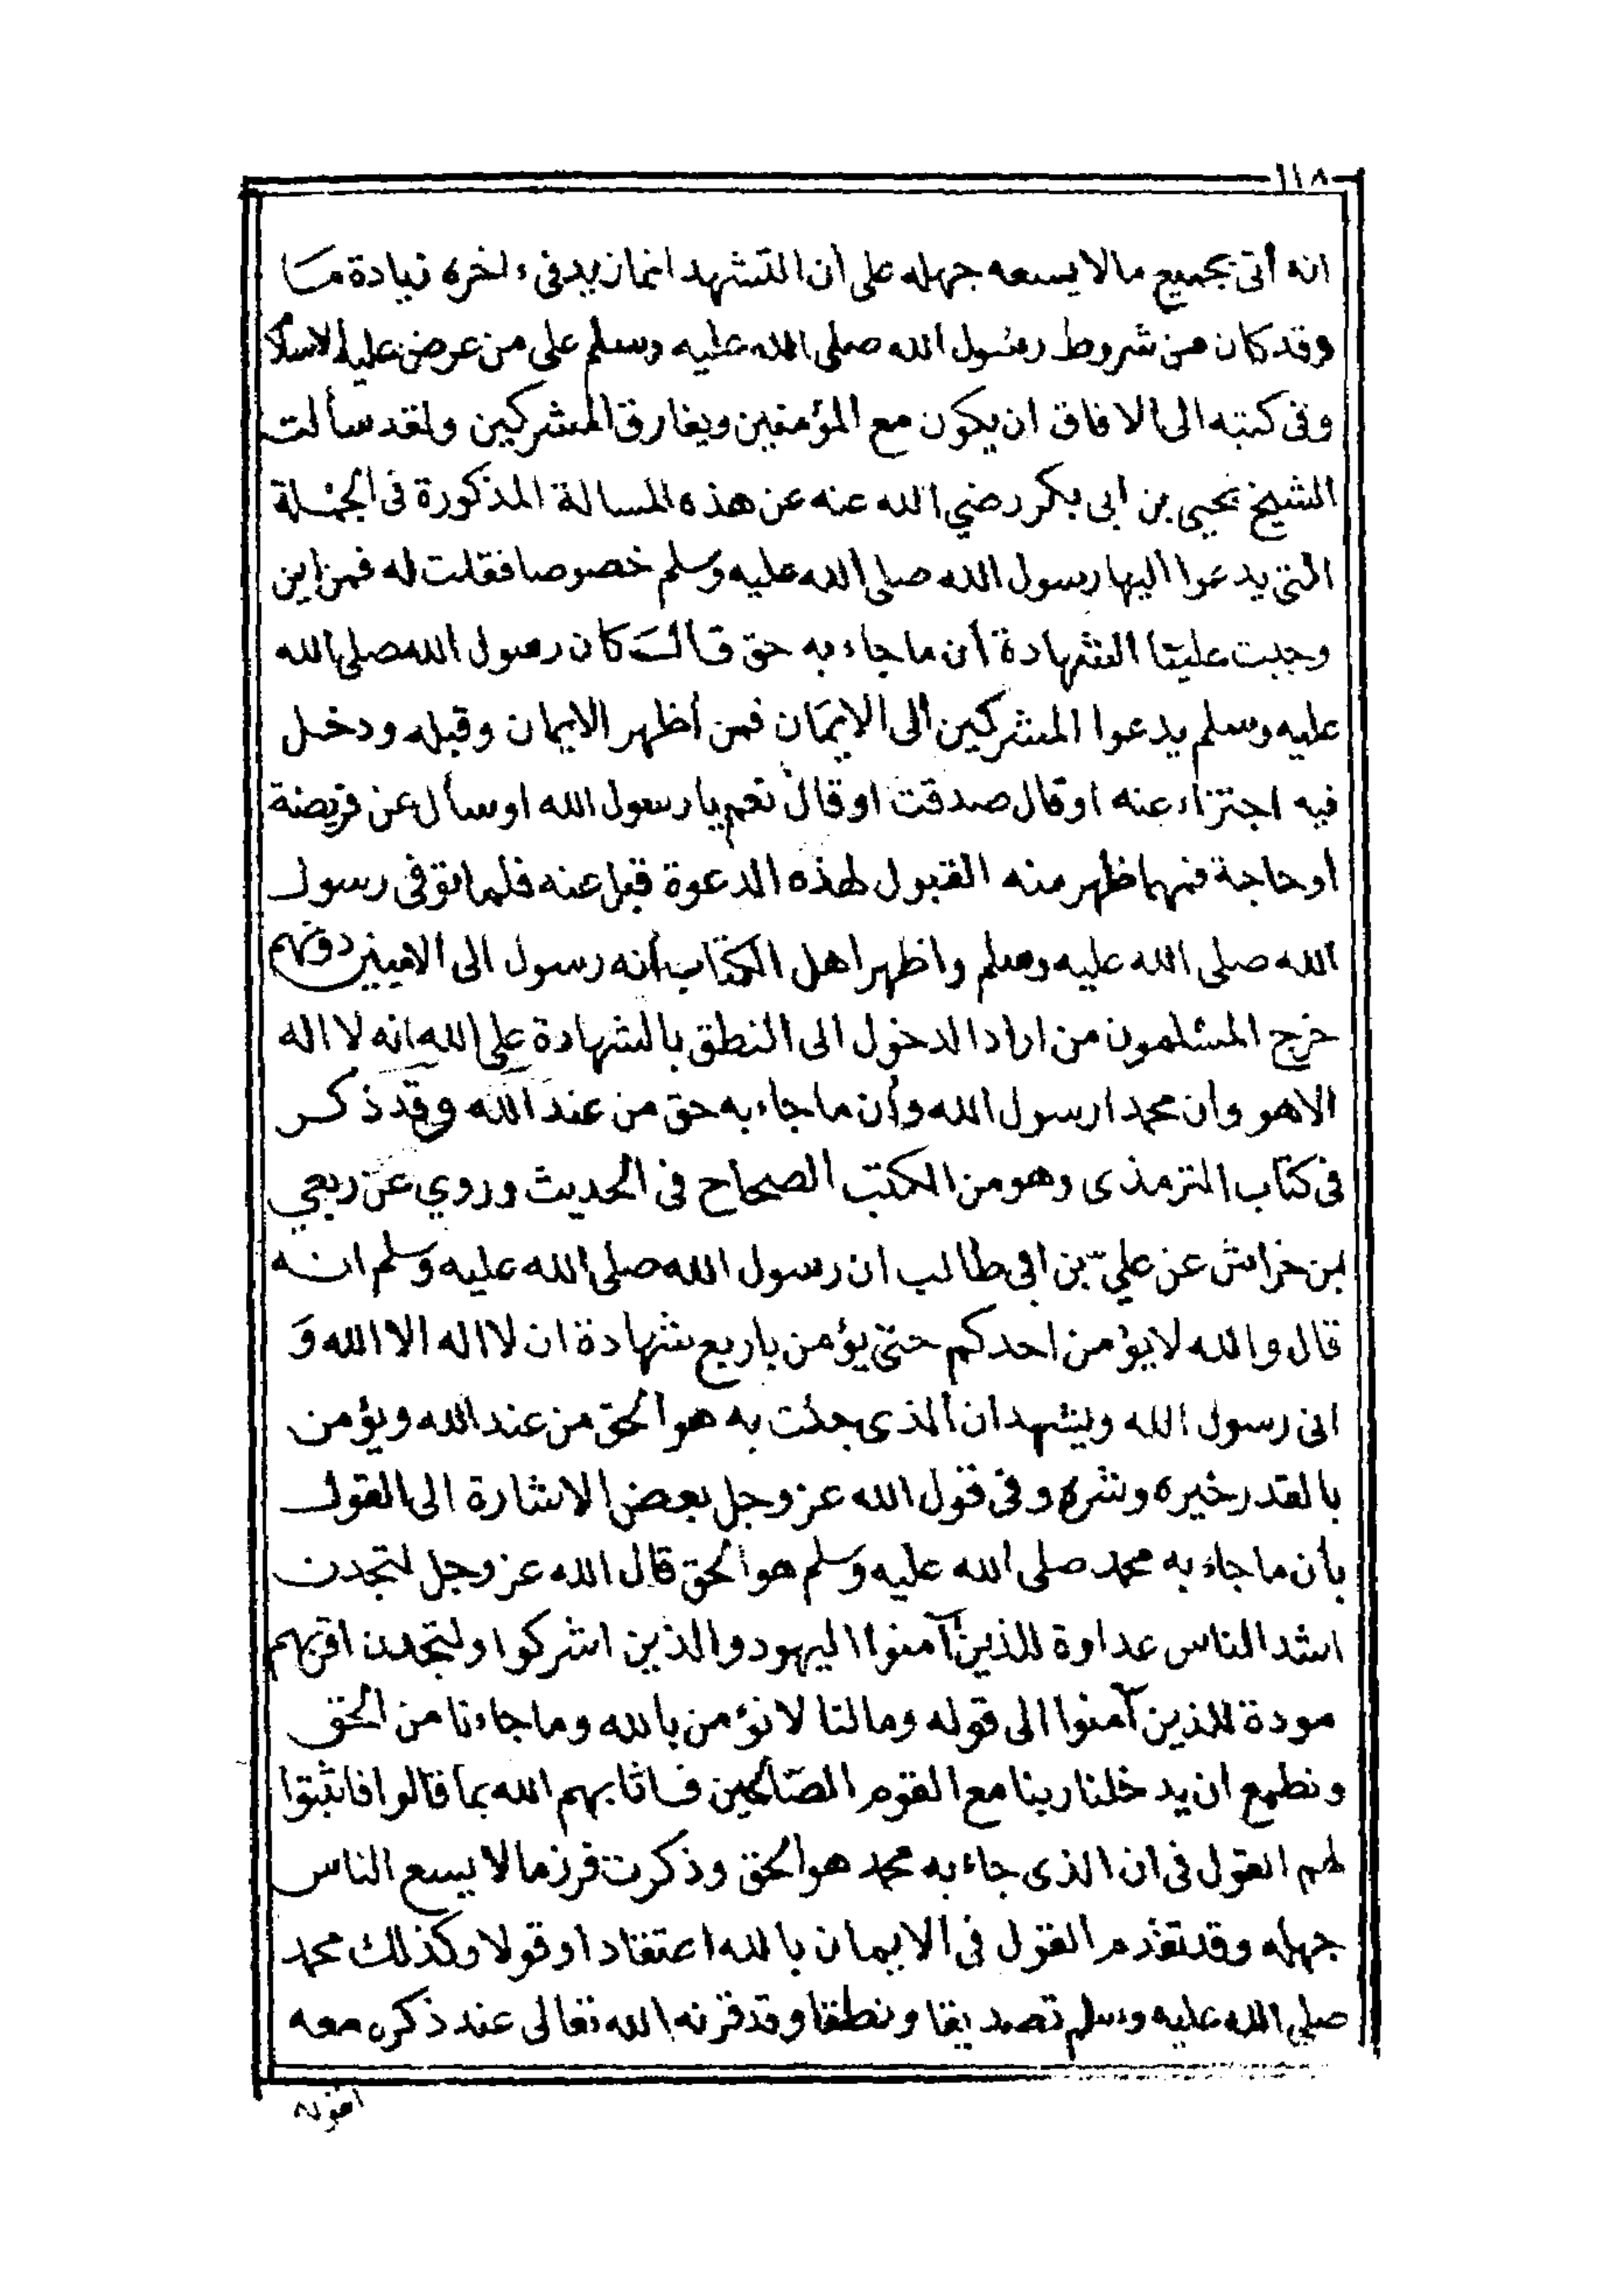 ١١٨
انه أتى بجميع مالا يسعه جهله على أن التشهد انما زيد فى ءاخره زيادة ما
وقد كان من شروط رسول الله صلى الله عليه وسلم على من عرض عليه الاسلا
وفى كتبه الى الافاق ان يكون مع المؤمنين ويفارق المشركين ولقد سألت
الشيخ يحيى بن ابى بكر رضي الله عنه عن هذه المسالة المذكورة فى الجملة
التى يدعوا اليها رسول الله صلى الله عليه وسلم خصوصا فقلت له فمن اين
وجبت علينا الشهادة أن ما جاء به حق قال كان رسول الله صلى الله
عليه وسلم يدعوا المشركين الى الايمان فمن أظهر الايمان وقبله ودخل
فيه اجتزاء عنه او قال صدقت او قال نعم يا رسول الله او سأل عن فريضة
أو حاجة فمهما ظهر منه القبول لهذه الدعوة قبل عنه فلما توفى رسول
الله صلى الله عليه وسلم واظهر اهل الكتاب أنه رسول الى الاميين دونهم
خرج المسلمون من اراد الدخول الى النطق بالشهادة على الله انه لا اله
الا هو وان محمدا رسول الله وأن ما جاء به حق من عند الله وقد ذكر
فى كتاب الترمذى وهو من الكتب الصحاح فى الحديث وروي عن ربعي
بن خراش عن علي بن ابى طالب ان رسول الله صلى الله عليه وسلم انه
قال والله لا يؤمن احدكم حتى يؤمن باربع شهادة ان لا اله الا الله وَ
انى رسول الله ويشهد ان الذى جئت به هو الحق من عند الله ويؤمن
بالقدر خيره وشره وفى قول الله عز وجل بعض الاشارة الى القول
بأن ما جاء به محمد صلى الله عليه وسلم هو الحق قال الله عز وجل لتجدن
اشد الناس عداوة للذين آمنوا اليهود والذين اشركوا ولتجدن اقربهم
مودة للذين آمنوا الى قوله وما لنا لا نؤمن بالله وما جاءنا من الحق
ونطمع ان يدخلنا ربنا مع القوم الصالحين فاثابهم الله بما قالوا فاثبتوا
لهم القول فى ان الذى جاء به محمد هو الحق وذكرت فرز مالا يسع الناس
جهله وقد تقدم القول فى الايمان بالله اعتقادا وقولا وكذلك محمد
صلى الله عليه وسلم تصديقا ونطقا وقد قرنه الله تعالى عند ذكره معه